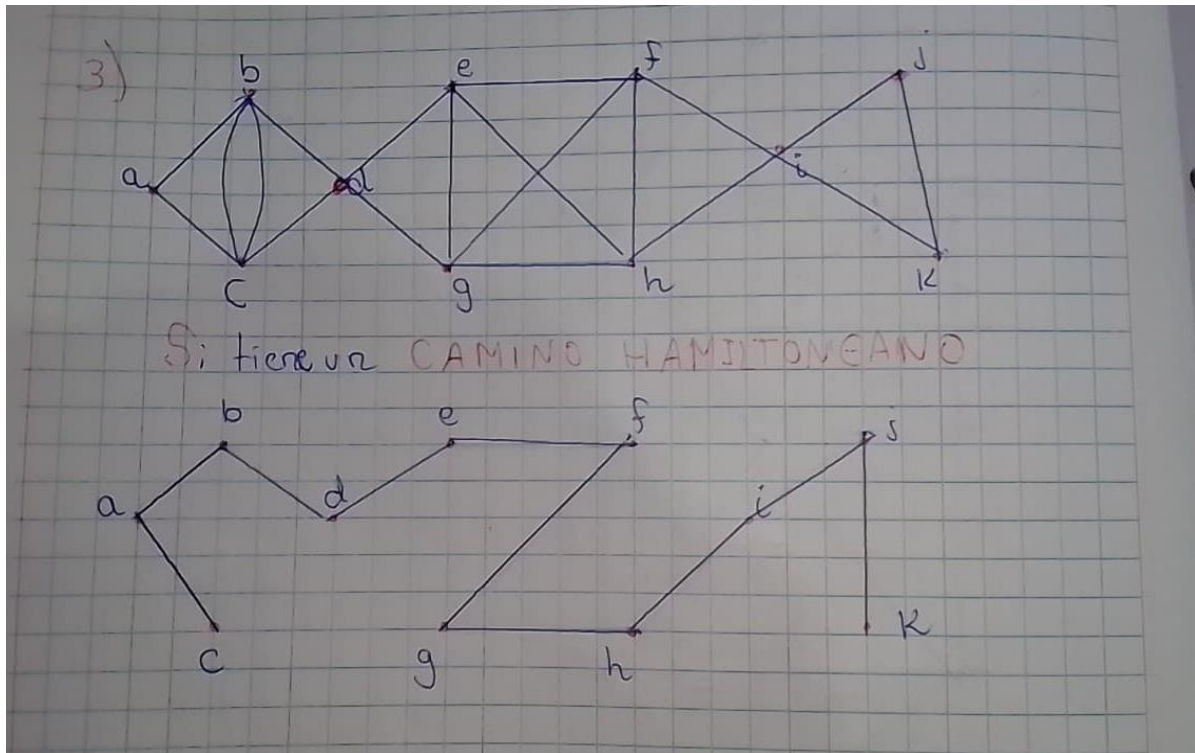 3)
b e f j
a d i
c g h k
Si tiene un CAMINO HAMILTONEANO
b e f j
a d i
c g h k